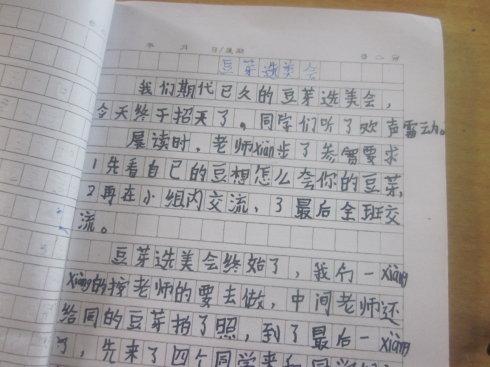 年 月 日/星期
豆芽选美会
我们期代已久的豆芽选美会，
今天终于招天了。同学们听了欢声雷动。
晨读时，老师xiān步了参曾要求
1先看自己的豆想怎么会你的豆菜，
2再在小组内交流、3最后全班交
流。
豆芽选美会终始了，我们一xiàng
xiàng的按老师的要去做，中间老师还
给同的豆芽拍了照，到了最后一xiàng
了，先来了四个同学来和同学